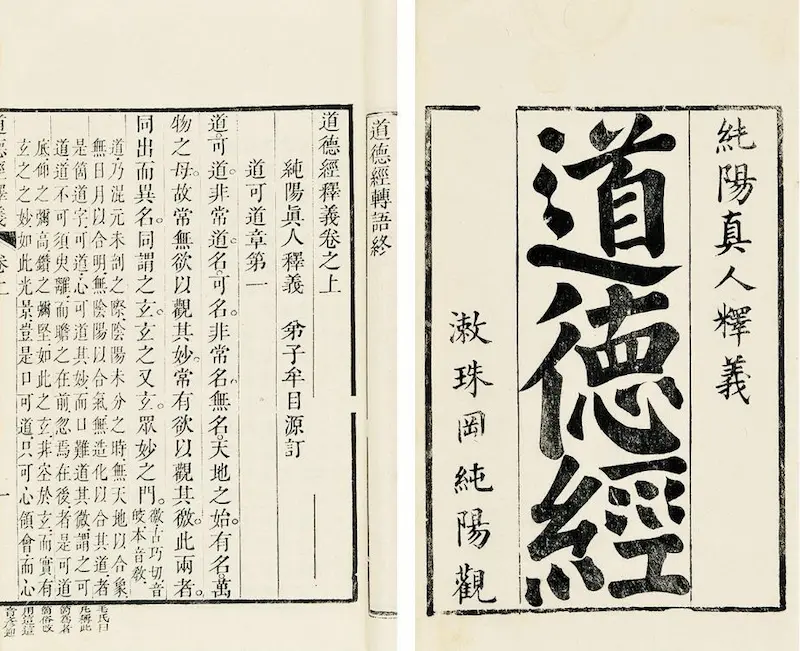 純陽真人釋義
道德經
漱珠岡純陽觀
道德經轉語終
道德經釋義卷之上
純陽眞人釋義 弟子牟目源訂
道可道章第一
道可道。非常道。名可名。非常名。無名。天地之始。有名。萬
物之母。故常無欲以觀其妙。常有欲以觀其徼。此兩者。
同出而異名。同謂之玄。玄之又玄。眾妙之門。徼古巧切音
皎本音敎
道乃混元未剖之際陰陽未分之時無天地以合象
無日月以合明無陰陽以合氣無造化以合其道者
是箇道字可道心可道其妙而口難道其微謂之可
道道不可須臾離而瞻之在前忽焉在後者是可道
底仰之彌高鑽之彌堅如此之玄非空於玄而實有
玄之之妙如此光景豈是口可道只可心領會而心
道德經釋義 卷上 一